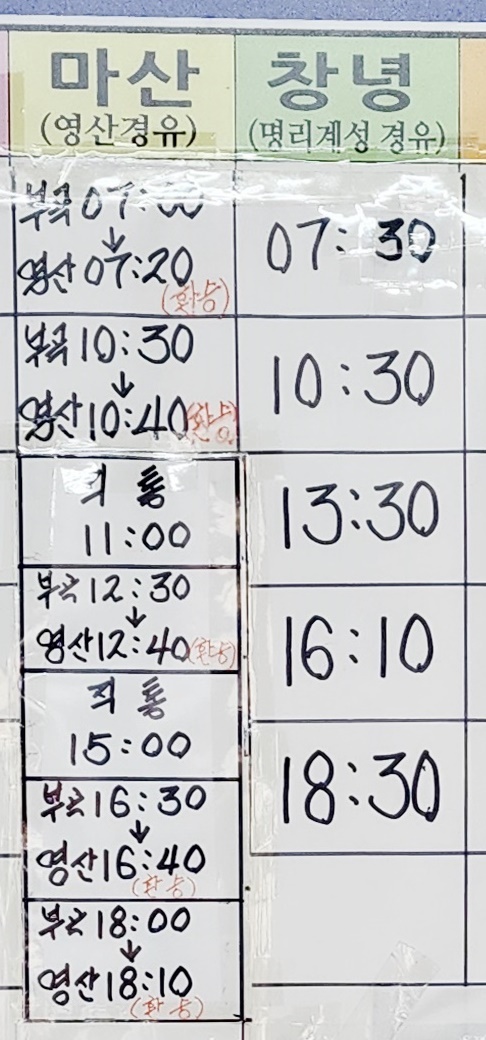 마산
(영산경유)
부곡 07:00
↓
영산 07:20
(환승)
부곡 10:30
↓
영산 10:40 (환승)
직통
11:00
부곡 12:30
↓
영산 12:40 (환승)
직통
15:00
부곡 16:30
↓
영산 16:40
(환승)
부곡 18:00
↓
영산 18:10
(환승)
창녕
(명리계성 경유)
07:30
10:30
13:30
16:10
18:30